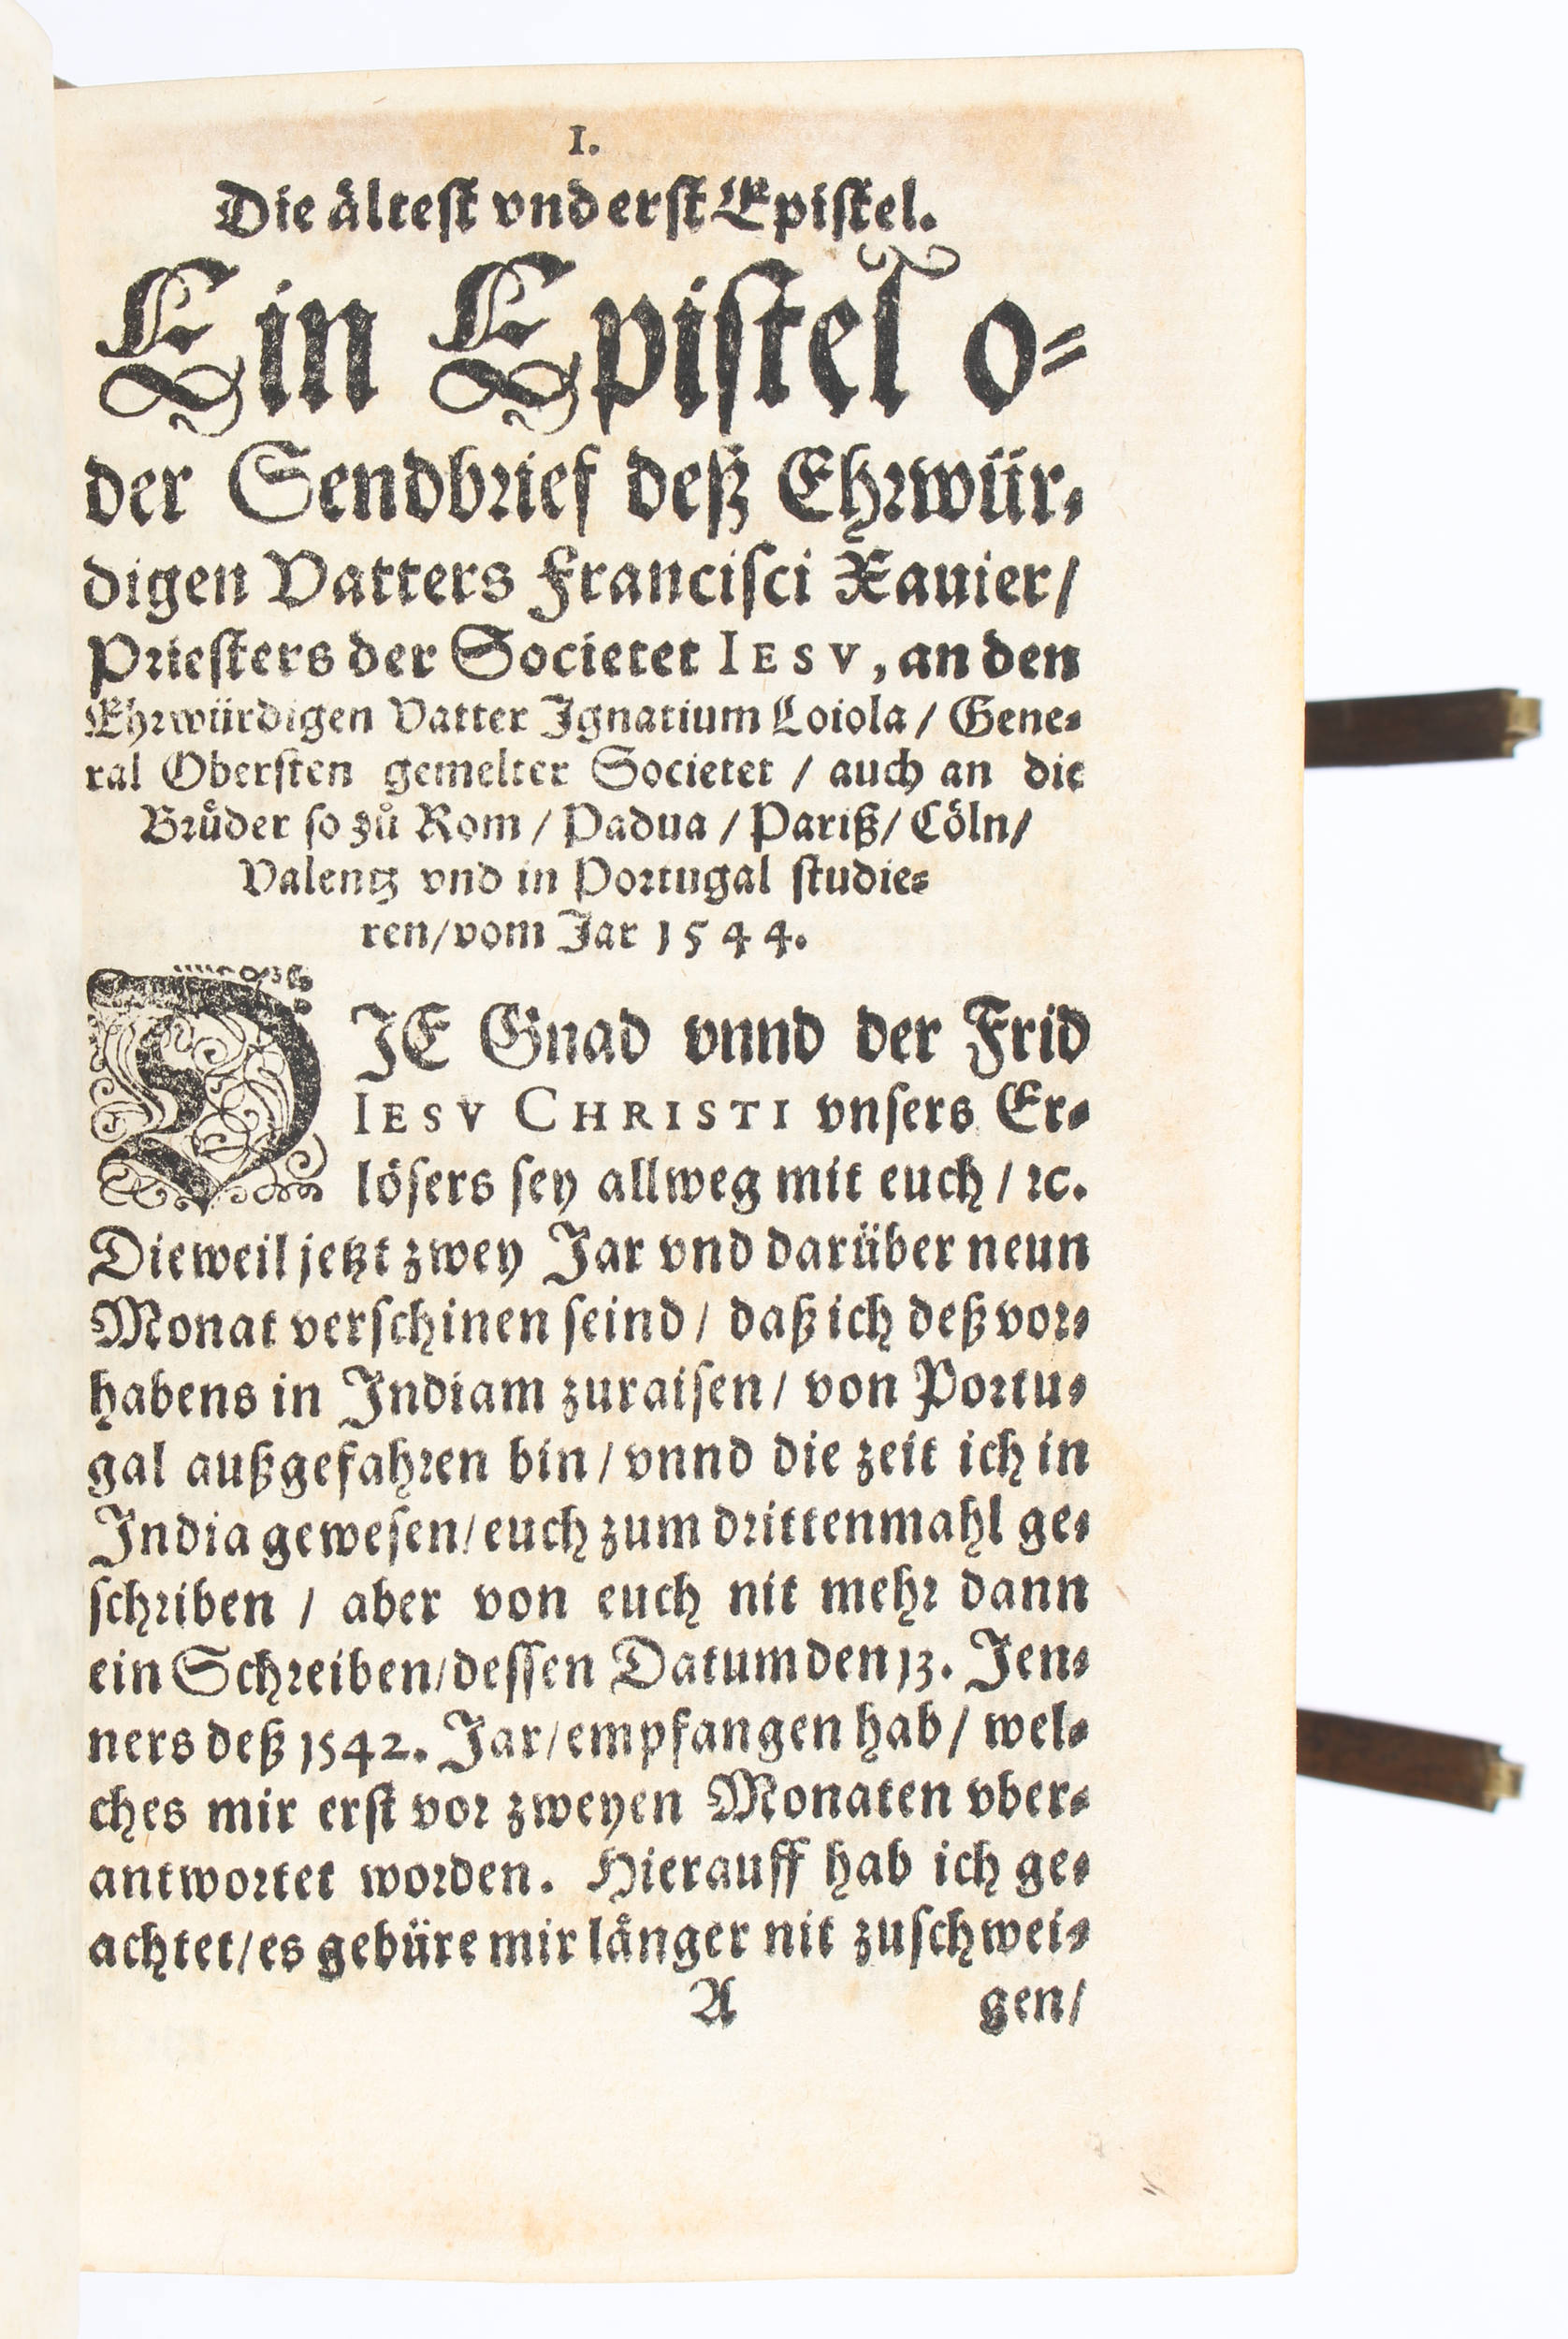 I.
Die åltest vnd erst Epistel.
Ein Epistel o=
der Sendbrief deß Ehrwür=
digen Vatters Francisci Xauier/
Priesters der Societet IESV, an den
Ehrwürdigen Vatter Ignatium Loiola / Gene=
ral Obersten gemelter Societet / auch an die
Bruͤder so zů Rom / Padua / Pariß / Cöln /
Valentz vnd in Portugal studie=
ren/vom Jar 1544.
DIE Gnad vnnd der Frid
IESV CHRISTI vnsers Er=
lösers sey allweg mit euch / ꝛc.
Dieweil jetzt zwey Jar vnd darüber neun
Monat verschinen seind / daß ich deß vor=
habens in Indiam zuraisen / von Portu=
gal außgefahren bin / vnnd die zeit ich in
India gewesen/euch zum drittenmahl ge=
schriben / aber von euch nit mehr dann
ein Schreiben/dessen Datum den 13. Jen=
ners deß 1542. Jar/empfangen hab / wel=
ches mir erst vor zweyen Monaten vber=
antwortet worden. Hierauff hab ich ge=
achtet/es gebüre mir långer nit zuschwei=
A gen/